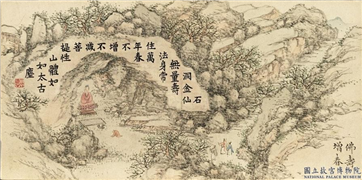 石
洞金仙
無量壽
法身常
住萬
年春
不
增
不
減
菩
提性
山體如
如太古
塵
佛壽
增春
國立故宮博物院
NATIONAL PALACE MUSEUM